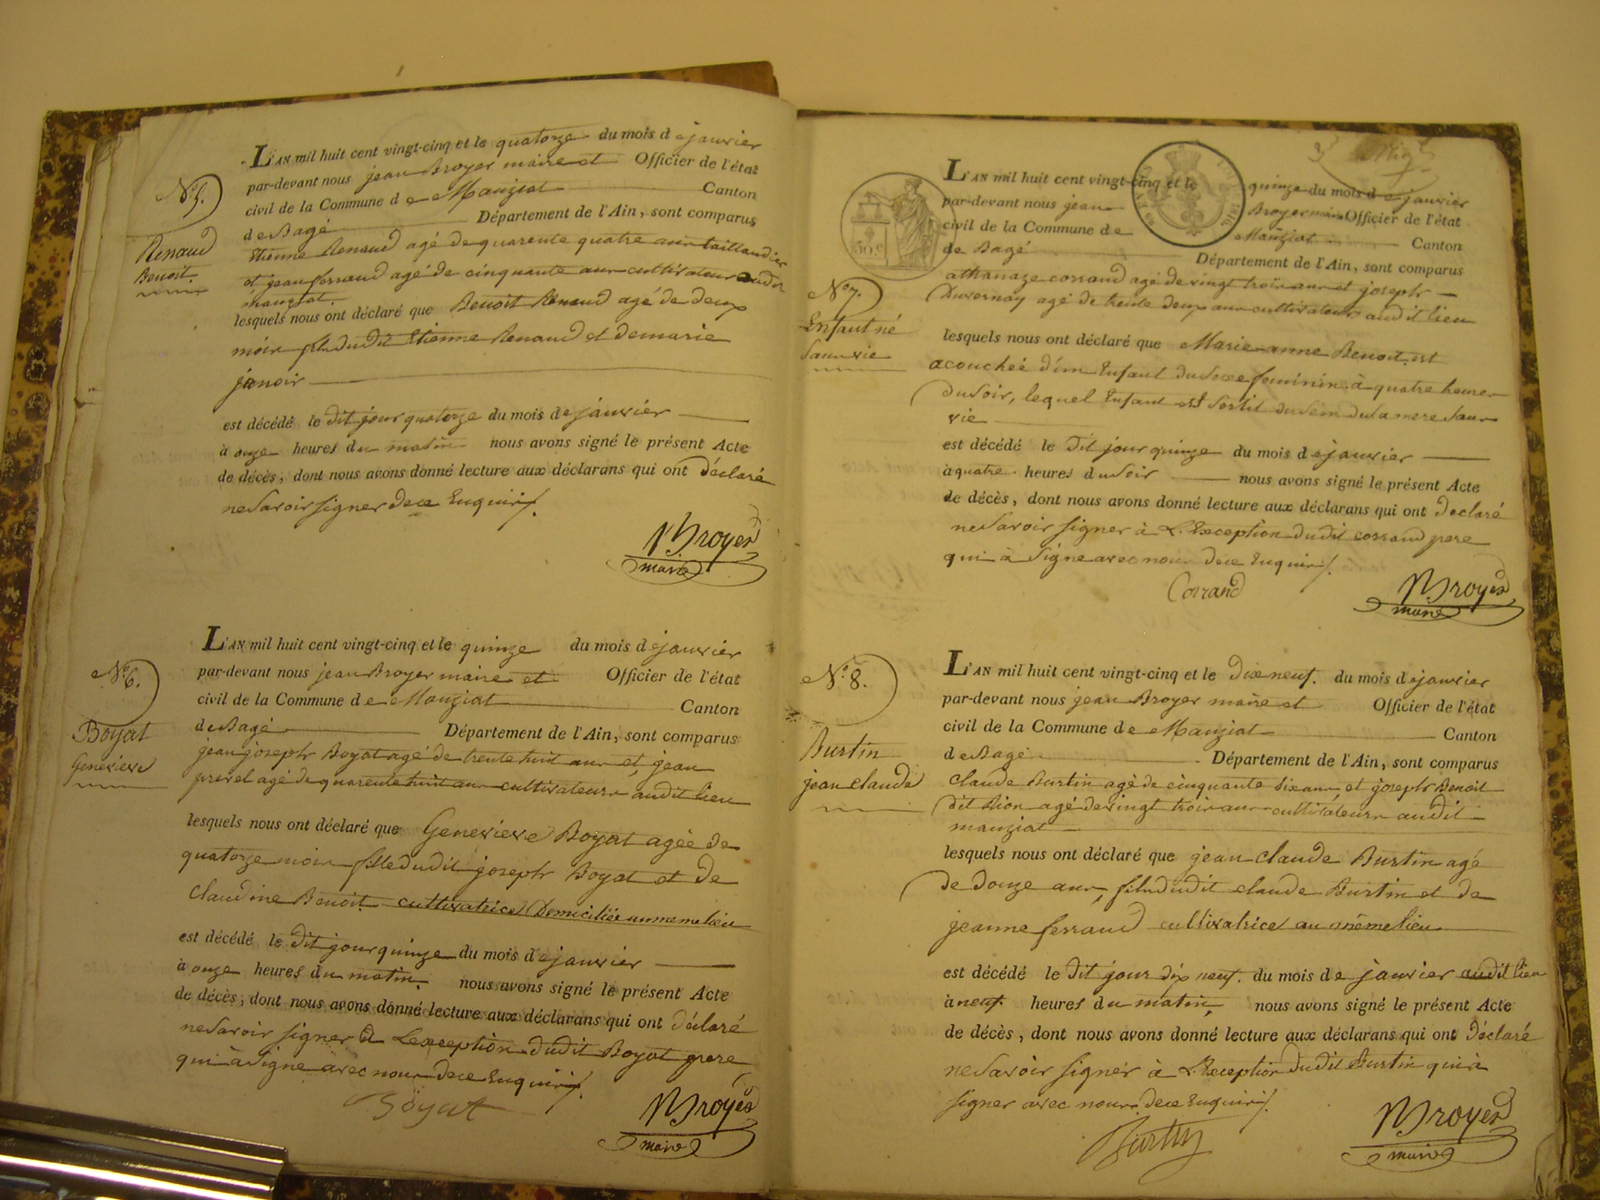 N.° 5.
Renaud
Benoit
L'AN mil huit cent vingt-cinq et le quatorze du mois de janvier
par-devant nous jean Broyer maire et Officier de l'état
civil de la Commune de Manziat Canton
de Bagé Département de l'Ain, sont comparus
Etienne Renaud agé de quarente quatre ans taillandier
et jean ferraud agé de cinquante ans cultivateur audit
manziat.
lesquels nous ont déclaré que Benoit Renaud agé de deux
mois fils dudit Etienne Renaud et de marie
janoir
est décédé le dit jour quatorze du mois de janvier
à onze heures du matin nous avons signé le présent Acte
de décès, dont nous avons donné lecture aux déclarans qui ont déclaré
ne Savoir signer de ce Enquis
Broyer
maire
N.° 6.
Boyat
Genevieve
L'AN mil huit cent vingt-cinq et le quinze du mois de janvier
par-devant nous jean Broyer maire et Officier de l'état
civil de la Commune de Manziat Canton
de Bagé Département de l'Ain, sont comparus
jean joseph Boyat agé de trente huit ans et jean
agé de quarente huit ans cultivateurs audit lieu
lesquels nous ont déclaré que Genevieve Boyat agée de
quatorze mois fille dudit joseph Boyat et de
Claudine Benoit cultivatrice Domiciliée au meme lieu
est décédé le dit jour quinze du mois de janvier
à onze heures du matin nous avons signé le présent Acte
de décès, dont nous avons donné lecture aux déclarans qui ont déclaré
ne Savoir signer à L'exception dudit Boyat pere
qui à Signé avec nous de ce Enquis
Boyat
Broyer
maire
50.c
N.° 7.
Enfant né
Sans vie
L'AN mil huit cent vingt-cinq et le quinze du mois de janvier
par-devant nous jean Broyer maire Officier de l'état
civil de la Commune de Manziat Canton
de Bagé Département de l'Ain, sont comparus
athanaze corrand agé de vingt trois ans et joseph
Duvernay agé de trente deux ans cultivateurs audit lieu
lesquels nous ont déclaré que Marie anne Benoit est
acouchée d'un Enfant du Sexe feminin à quatre heures
du Soir, lequel Enfant est Sortit du Sein de Sa mere Sans
vie
est décédé le dit jour quinze du mois de janvier
à quatre heures du Soir nous avons signé le présent Acte
de décès, dont nous avons donné lecture aux déclarans qui ont déclaré
ne Savoir signer à L'Exception dudit corrand pere
qui à Signé avec nous de ce Enquis
Corrand
Broyer
maire
N.° 8.
Burtin
jean claude
L'AN mil huit cent vingt-cinq et le dix neuf. du mois de janvier
par-devant nous jean Broyer maire et Officier de l'état
civil de la Commune de Manziat Canton
de Bagé Département de l'Ain, sont comparus
Claude Burtin agé de cinquante six ans et joseph Benoit
dit Dion agé de vingt trois ans cultivateurs audit
manziat
lesquels nous ont déclaré que jean claude Burtin agé
de douze ans, fils dudit claude Burtin et de
jeanne ferraud cultivatrice au même lieu
est décédé le dit jour dix neuf. du mois de janvier audit lieu
à neuf heures du matin, nous avons signé le présent Acte
de décès, dont nous avons donné lecture aux déclarans qui ont déclaré
ne Savoir signer à L'Exception dudit Burtin qui à
signer avec nous de ce Enquis
Burtin
Broyer
maire